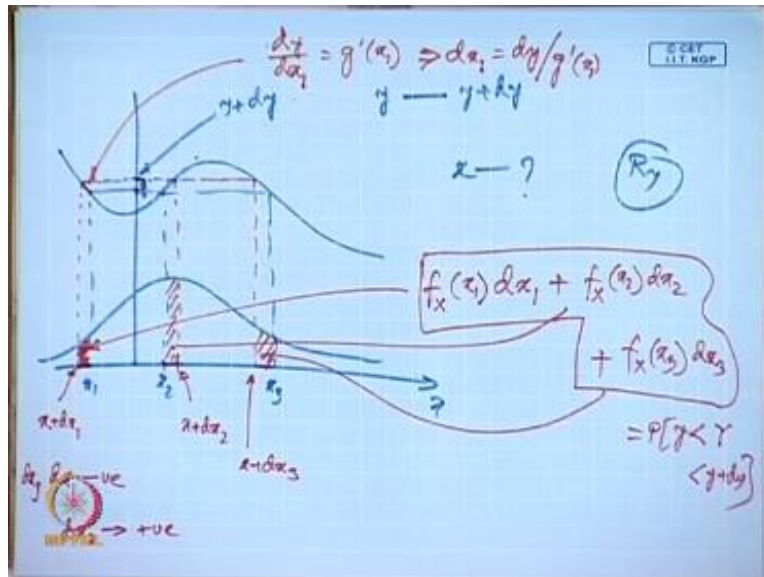 dy/dx₁ = g'(x₁) ⇒ dx₁ = dy/g'(x₁)
© CET
I.I.T. KGP
y+dy
y — y+dy
x — ?
R_y
f_x(x₁)dx₁ + f_x(x₂)dx₂
+ f_x(x₃)dx₃
= P[y < Y
< y+dy]
x₁
x₂
x₃
x
x+dx₁
x+dx₂
x+dx₃
-ve
→ +ve